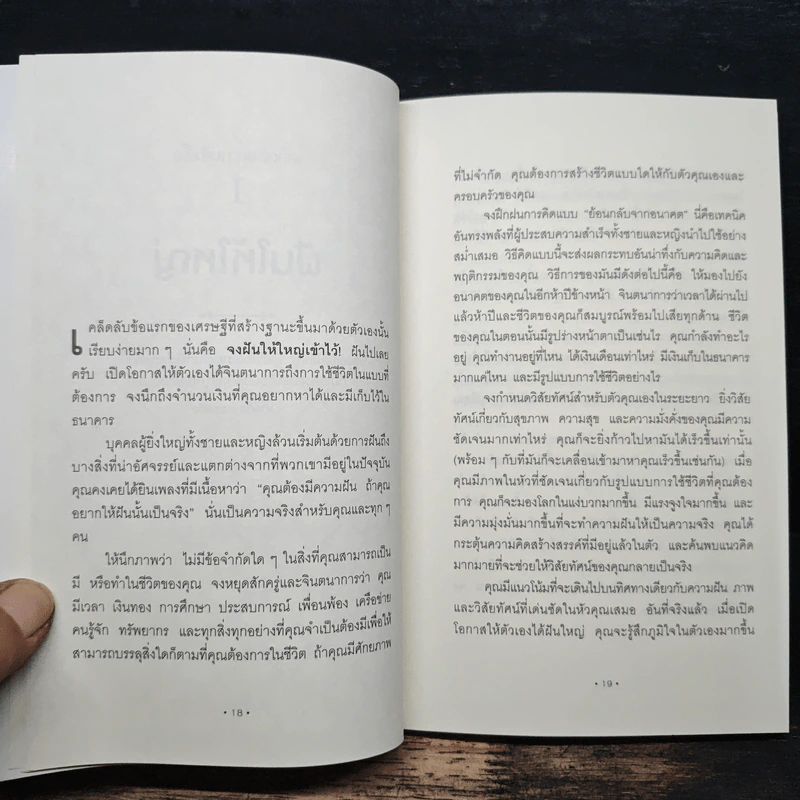 เคล็ดลับข้อแรกของเศรษฐีที่สร้างฐานะขึ้นมาด้วยตัวเองนั้น
เรียบง่ายมาก ๆ นั่นคือ จงฝันให้ใหญ่เข้าไว้! ฝันไปเลย
ครับ เปิดโอกาสให้ตัวเองได้จินตนาการถึงการใช้ชีวิตในแบบที่
ต้องการ จงนึกถึงจำนวนเงินที่คุณอยากหาได้และมีเก็บไว้ใน
ธนาคาร
บุคคลผู้ยิ่งใหญ่ทั้งชายและหญิงล้วนเริ่มต้นด้วยการฝันถึง
บางสิ่งที่น่าอัศจรรย์และแตกต่างจากที่พวกเขามีอยู่ในปัจจุบัน
คุณคงเคยได้ยินเพลงที่มีเนื้อหาว่า “คุณต้องมีความฝัน ถ้าคุณ
อยากให้ฝันนั้นเป็นจริง” นั่นเป็นความจริงสำหรับคุณและทุก ๆ
คน
ให้นึกภาพว่า ไม่มีข้อจำกัดใด ๆ ในสิ่งที่คุณสามารถเป็น
มี หรือทำในชีวิตของคุณ จงหยุดสักครู่และจินตนาการว่า คุณ
มีเวลา เงินทอง การศึกษา ประสบการณ์ เพื่อนพ้อง เครือข่าย
คนรู้จัก ทรัพยากร และทุกสิ่งทุกอย่างที่คุณจำเป็นต้องมีเพื่อให้
สามารถบรรลุสิ่งใดก็ตามที่คุณต้องการในชีวิต ถ้าคุณมีศักยภาพ
• 18 •
ที่ไม่จำกัด คุณต้องการสร้างชีวิตแบบใดให้กับตัวคุณเองและ
ครอบครัวของคุณ
จงฝึกฝนการคิดแบบ “ย้อนกลับจากอนาคต” นี่คือเทคนิค
อันทรงพลังที่ผู้ประสบความสำเร็จทั้งชายและหญิงนำไปใช้อย่าง
สม่ำเสมอ วิธีคิดแบบนี้จะส่งผลกระทบอันน่าทึ่งกับความคิดและ
พฤติกรรมของคุณ วิธีการของมันมีดังต่อไปนี้คือ ให้มองไปยัง
อนาคตของคุณในอีกห้าปีข้างหน้า จินตนาการว่าเวลาได้ผ่านไป
แล้วห้าปีและชีวิตของคุณก็สมบูรณ์พร้อมไปเสียทุกด้าน ชีวิต
ของคุณในตอนนั้นมีรูปร่างหน้าตาเป็นเช่นไร คุณกำลังทำอะไร
อยู่ คุณทำงานอยู่ที่ไหน ได้เงินเดือนเท่าไหร่ มีเงินเก็บในธนาคาร
มากแค่ไหน และมีรูปแบบการใช้ชีวิตอย่างไร
จงกำหนดวิสัยทัศน์สำหรับตัวคุณเองในระยะยาว ยิ่งวิสัย
ทัศน์เกี่ยวกับสุขภาพ ความสุข และความมั่งคั่งของคุณมีความ
ชัดเจนมากเท่าไหร่ คุณก็จะยิ่งก้าวไปหามันได้เร็วขึ้นเท่านั้น
(พร้อม ๆ กับที่มันก็จะเคลื่อนเข้ามาหาคุณเร็วขึ้นเช่นกัน) เมื่อ
คุณมีภาพในหัวที่ชัดเจนเกี่ยวกับรูปแบบการใช้ชีวิตที่คุณต้อง
การ คุณก็จะมองโลกในแง่บวกมากขึ้น มีแรงจูงใจมากขึ้น และ
มีความมุ่งมั่นมากขึ้นที่จะทำความฝันให้เป็นความจริง คุณได้
กระตุ้นความคิดสร้างสรรค์ที่มีอยู่แล้วในตัว และค้นพบแนวคิด
มากมายที่จะช่วยให้วิสัยทัศน์ของคุณกลายเป็นจริง
คุณมีแนวโน้มที่จะเดินไปบนทิศทางเดียวกับความฝัน ภาพ
และวิสัยทัศน์ที่เด่นชัดในหัวคุณเสมอ อันที่จริงแล้ว เมื่อเปิด
โอกาสให้ตัวเองได้ฝันใหญ่ คุณจะรู้สึกภูมิใจในตัวเองมากขึ้น
• 19 •